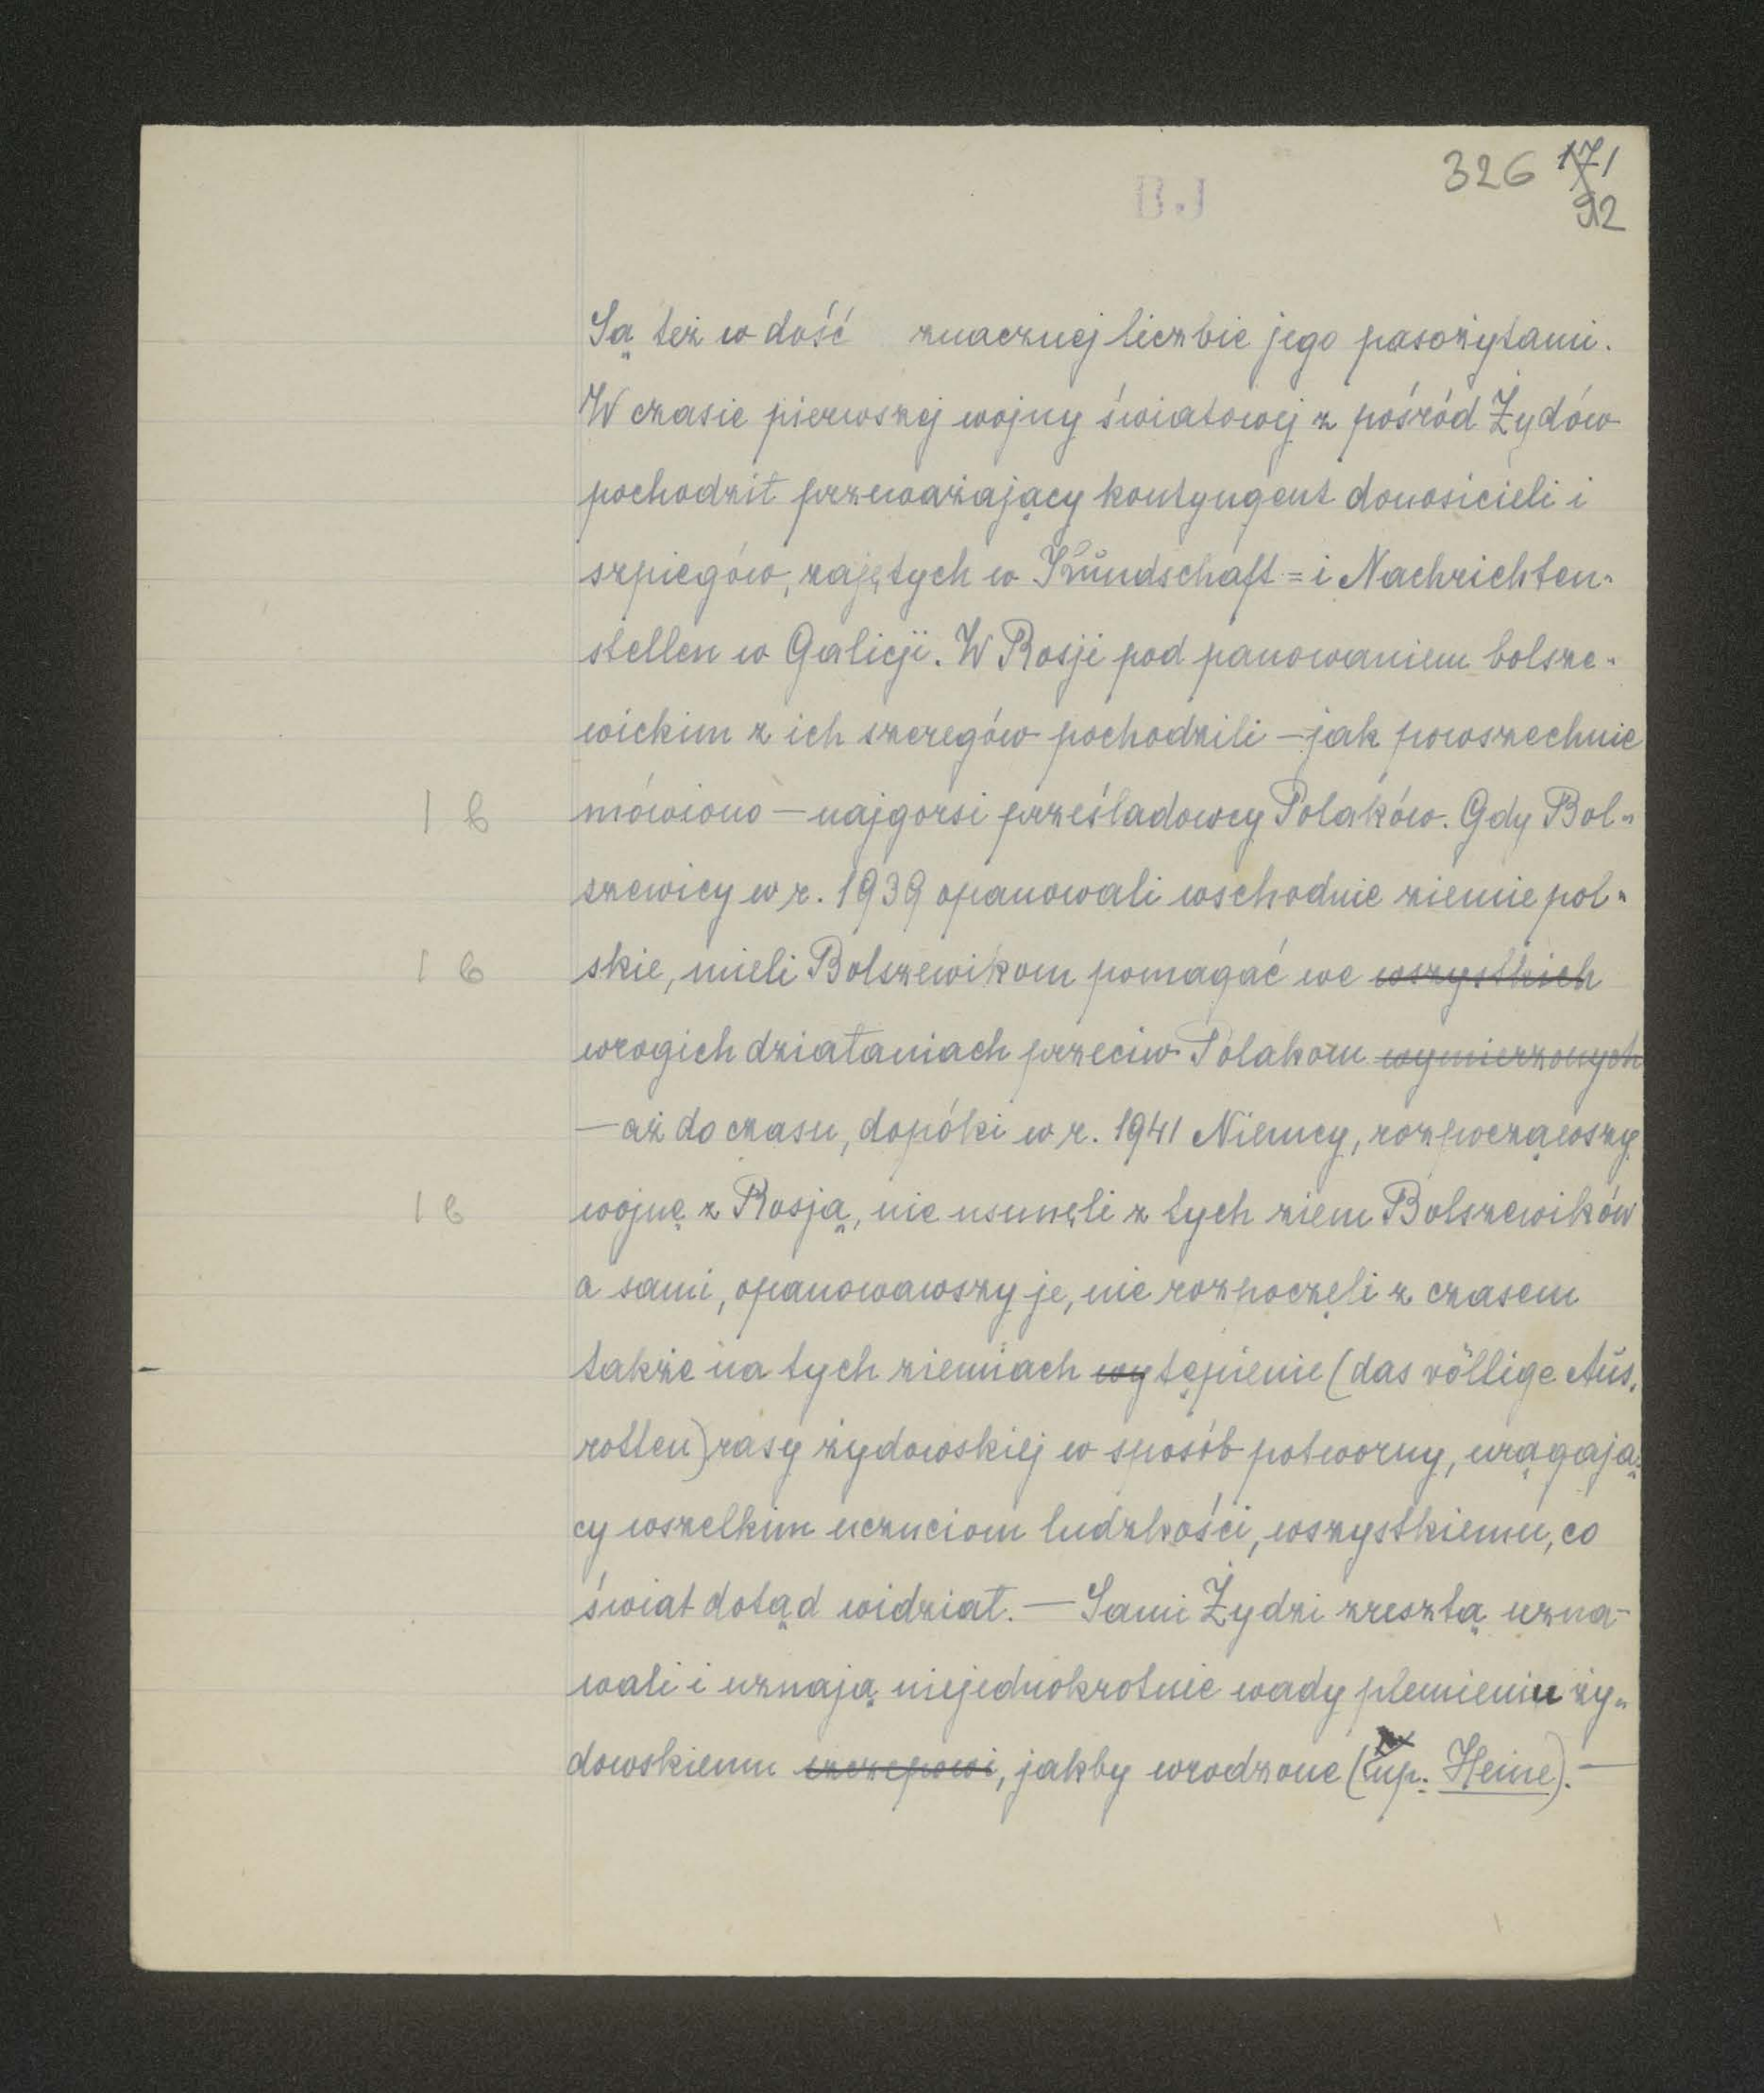 326 171
92
BJ
Są też w dość znacznej liczbie jego pasożytami.
W czasie pierwszej wojny światowej z pośród Żydów
pochodził przeważający kontyngent donosicieli i
szpiegów, zajętych w Kundschaft= i Nachrichten-
stellen w Galicji. W Rosji pod panowaniem bolsze-
wickim z ich szeregów pochodzili — jak powszechnie
1 b mówiono — najgorsi prześladowcy Polaków. Gdy Bol-
szewicy w r. 1939 opanowali wschodnie ziemie pol-
1 b skie, mieli Bolszewikom pomagać we wszystkich
wrogich działaniach przeciw Polakom wymierzonych
— aż do czasu, dopóki w r. 1941 Niemcy, rozpocząwszy
1 b wojnę z Rosją, nie usunęli z tych ziem Bolszewików
a sami, opanowawszy je, nie rozpoczęli z czasem
także na tych ziemiach wytępienie (das völlige Aus-
rotten) rasy żydowskiej w sposób potworny, urągają-
cy wszelkim uczuciom ludzkości, wszystkiemu, co
świat dotąd widział. — Sami Żydzi zresztą uzna-
wali i uznają niejednokrotnie wady plemieniu ży-
dowskiemu szczepowi, jakby wrodzone (np. Heine). —